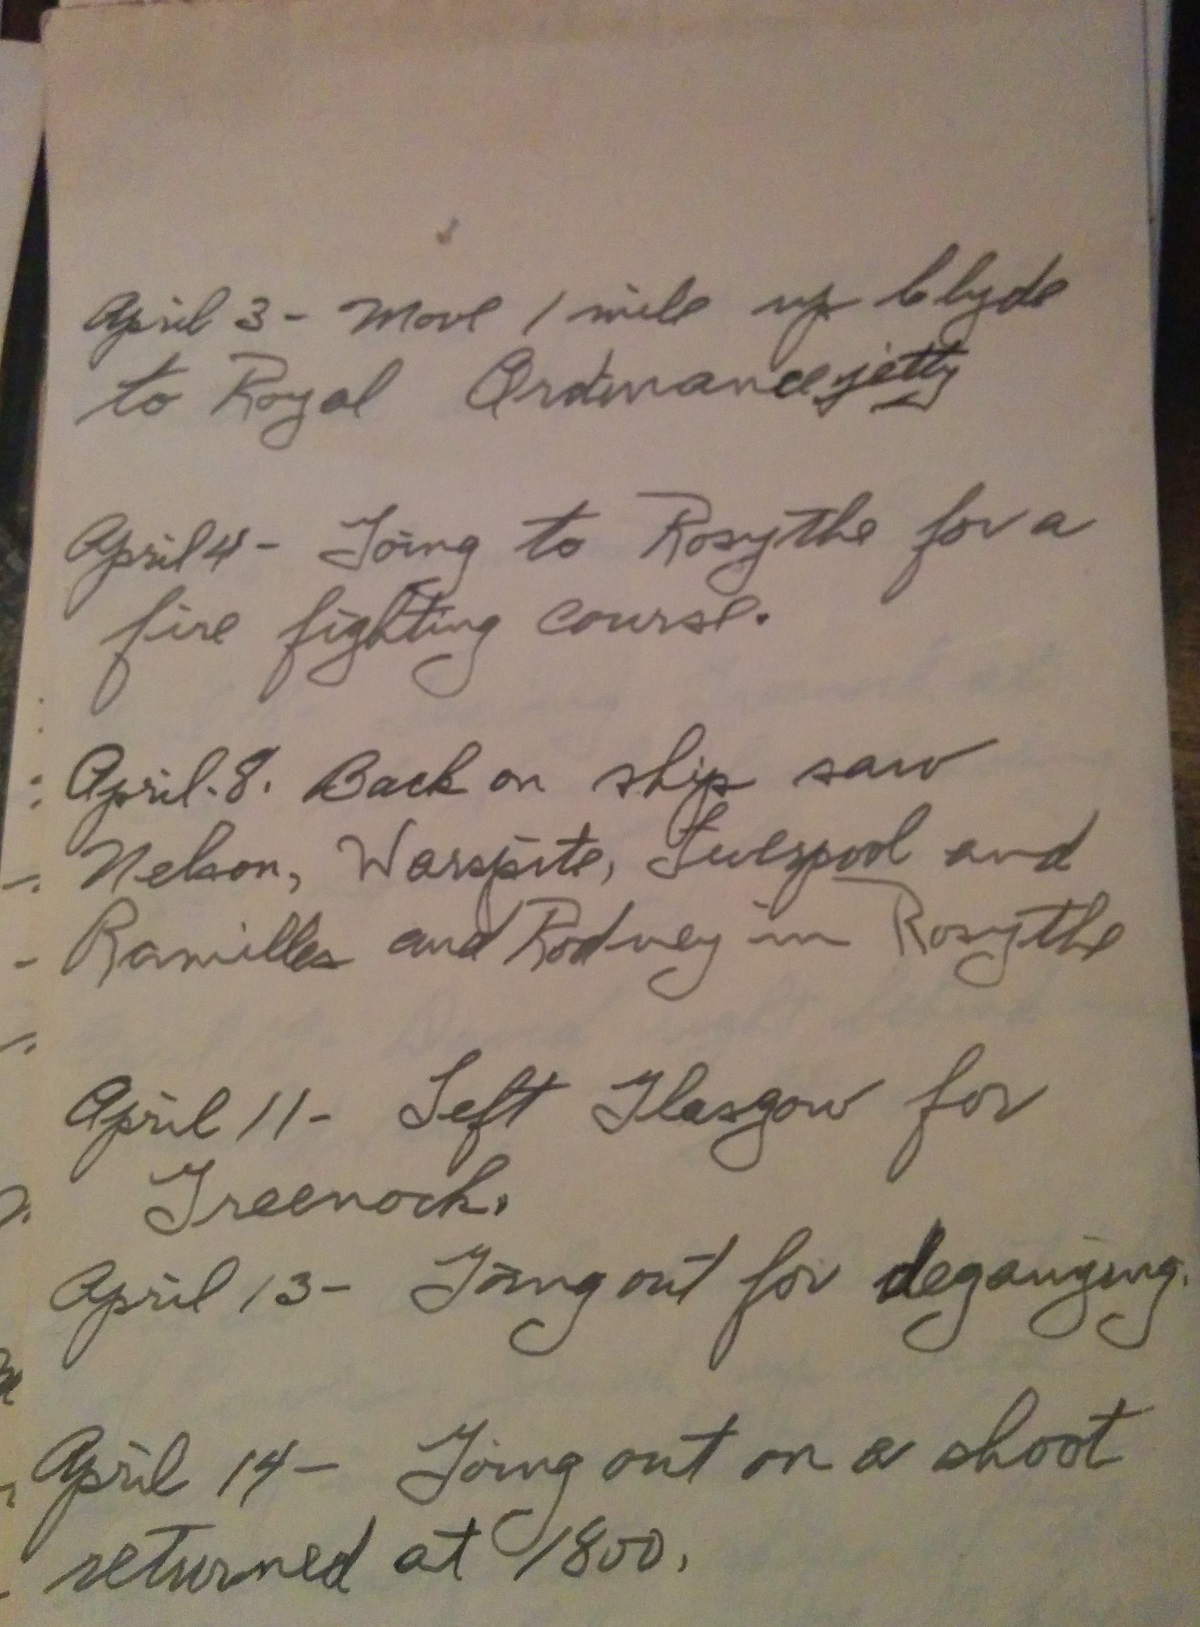 April 3 - Move 1 mile up Clyde
to Royal Ordinance jetty
April 4 - Going to Rosythe for a
fire fighting course.
April. 8. Back on ship saw
Nelson, Warspite, Liverpool and
Ramilles and Rodney in Rosythe
April 11 - Left Glasgow for
Greenock.
April 13 - Going out for degauging.
April 14 - Going out on a shoot
returned at 1800.